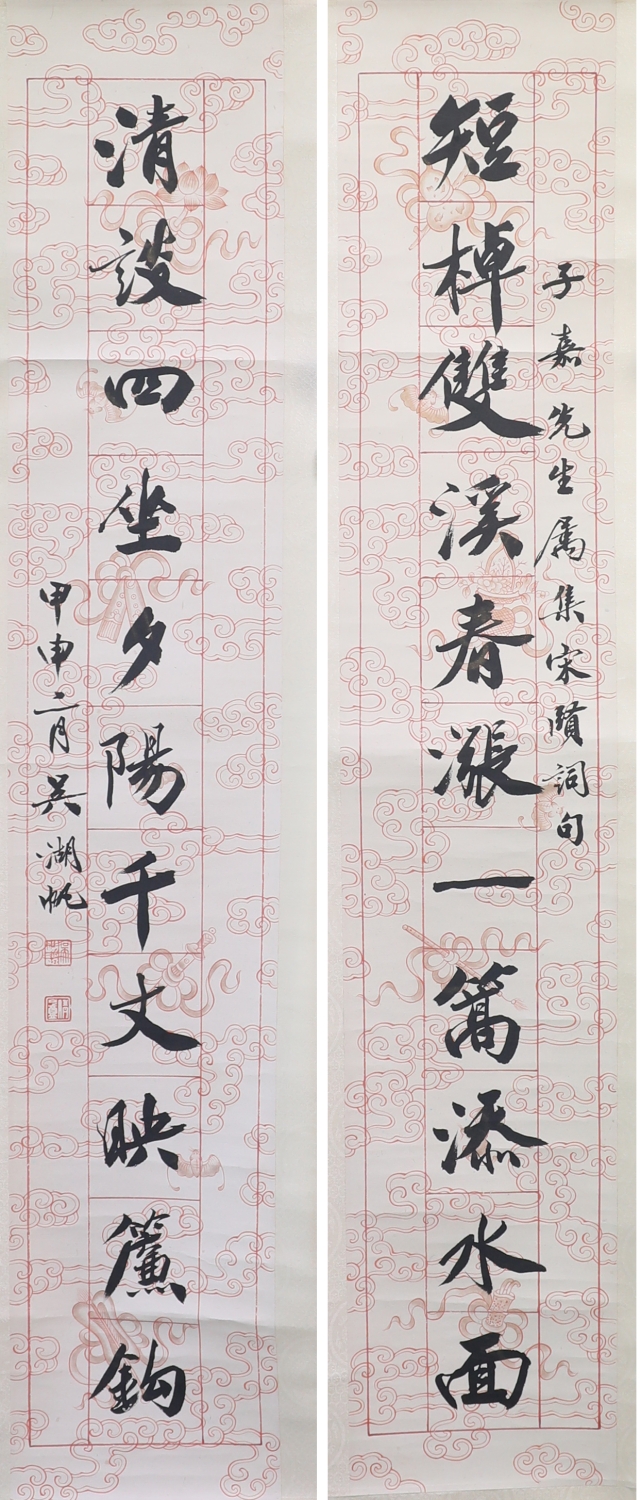 子嘉先生属集宋賢詞句
短棹雙溪春漲一篙添水面
清談四坐夕陽千丈映簾鈎
甲申二月吳湖帆